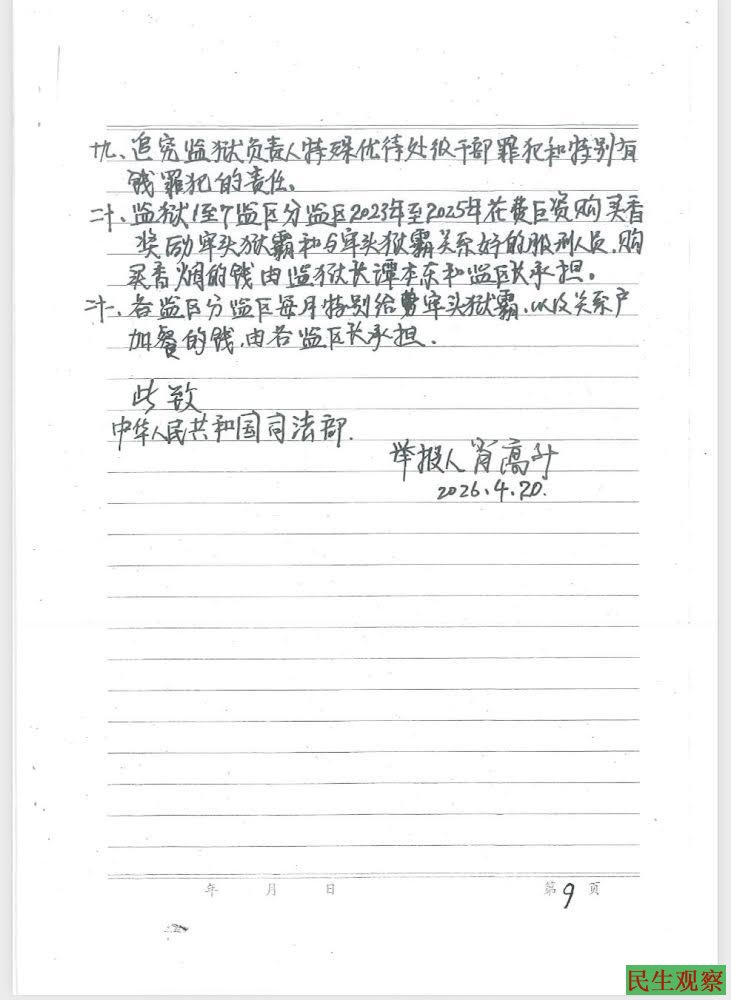 十九、追究监狱负责人特殊优待处级干部罪犯和特别有
钱罪犯的责任。
二十、监狱1至7监区分监区2023年至2025年花费巨资购买香
奖励牢头狱霸和与牢头狱霸关系好的服刑人员，购
买香烟的钱由监狱长谭本东和监区长承担。
二十、各监区分监区每月特别给牢头狱霸，以及关系户
加餐的钱，由各监区长承担．
此致
中华人民共和国司法部．
举报人 肖高斗
2026.4.20.
年 月 日
第9页
民生观察